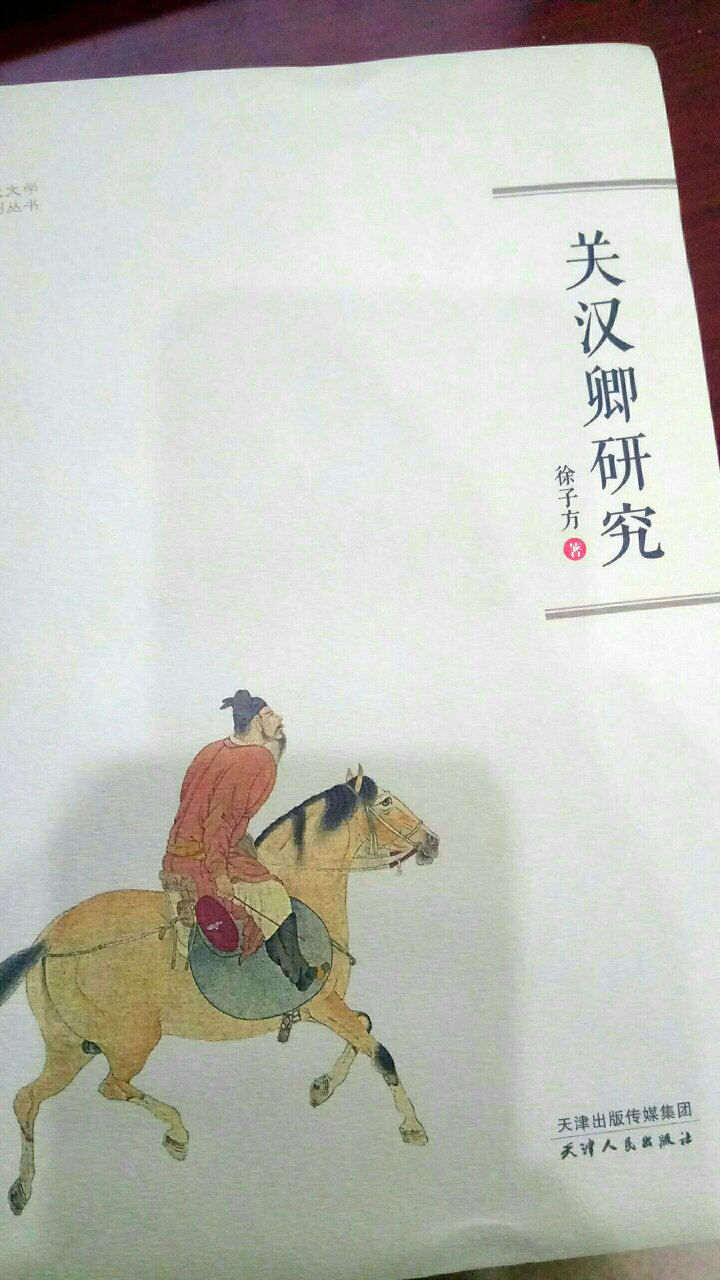 文学
丛书
关汉卿研究
徐子方
著
天津出版传媒集团
天津人民出版社